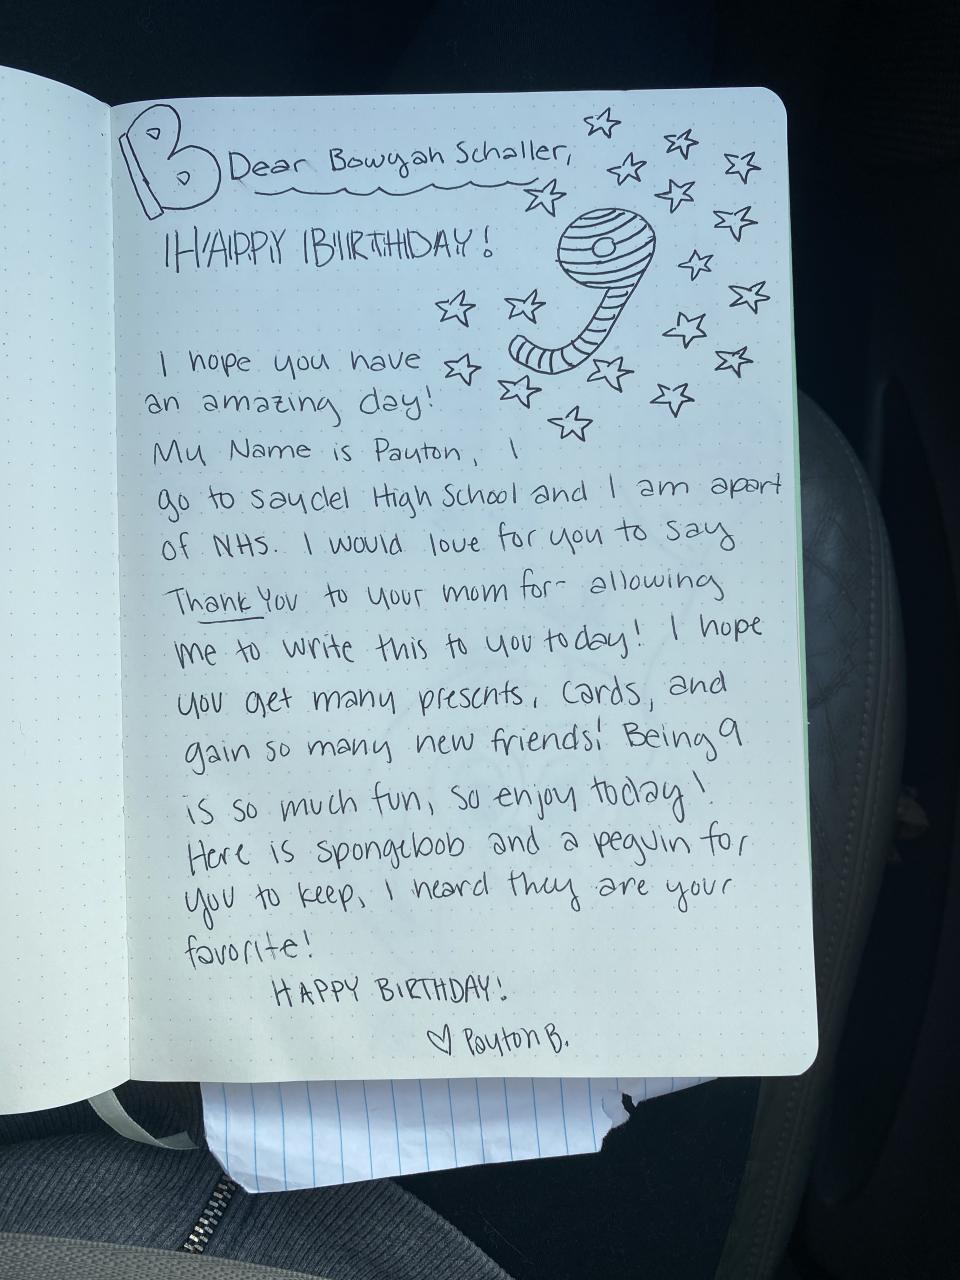 B
Dear Bowyan Schaller,
HAPPY BIRTHDAY!
9
I hope you have
an amazing day!
My Name is Payton, I
go to saydel High School and I am apart
of NHS. I would love for you to say
Thank You to your mom for- allowing
me to write this to you today! I hope
you get many presents, cards, and
gain so many new friends! Being 9
is so much fun, so enjoy today!
Here is spongebob and a peguin for
you to keep, I heard they are your
favorite!
HAPPY BIRTHDAY!
♡ Payton B.